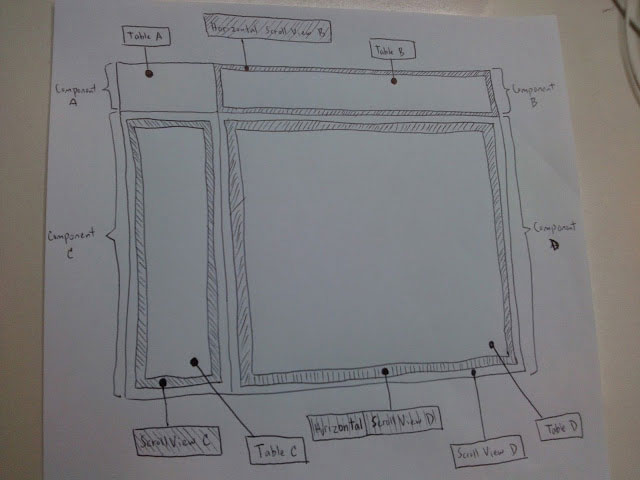 Table A
Horizontal Scroll View B
Table B
Component
A
Component
B
Component
C
Component
D
Scroll View C
Table C
Horizontal Scroll View D
Scroll View D
Table D